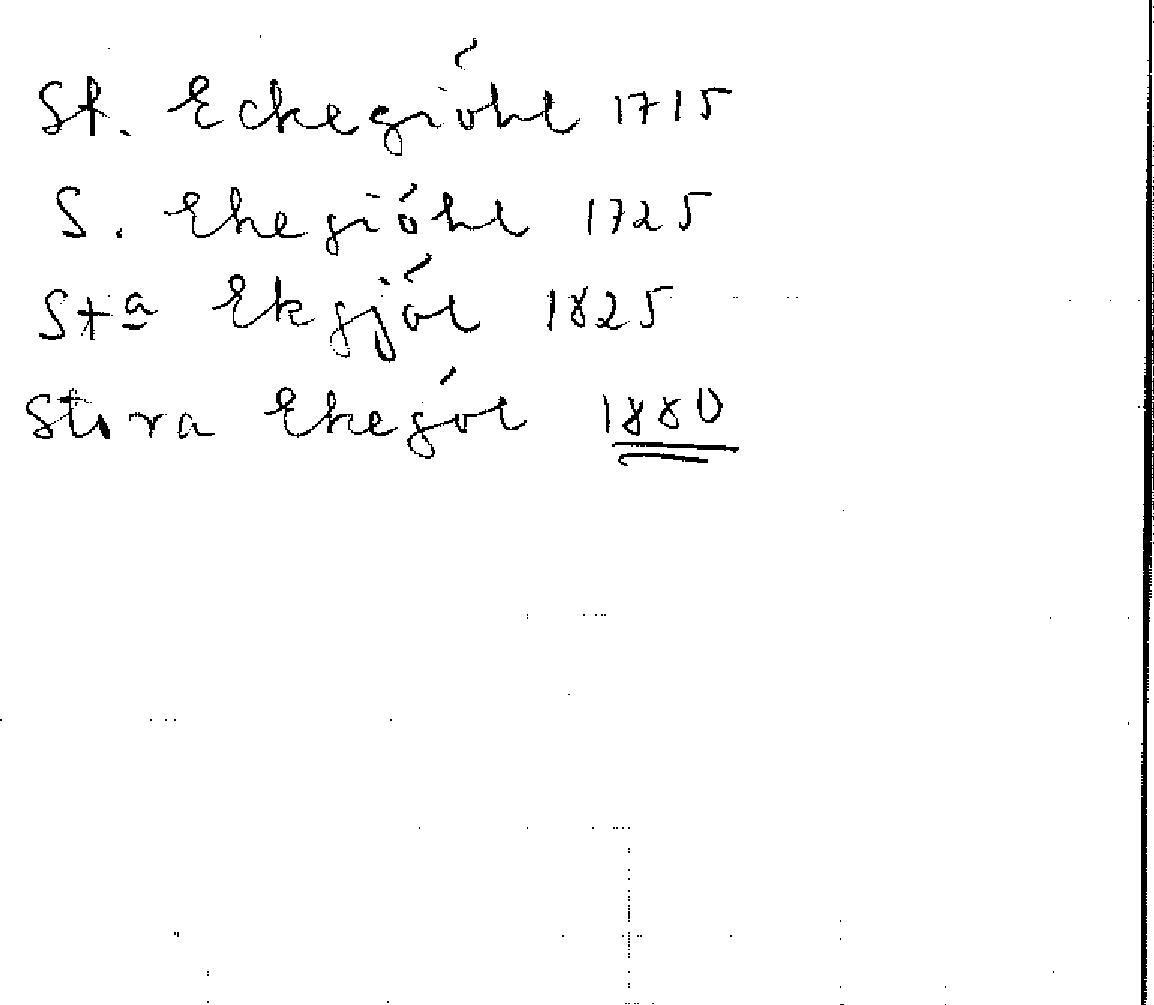 St. Eckegióhl 1715
S. Ekegióhl 1725
Sta Ekgjól 1825
Stora Ekegól 1880